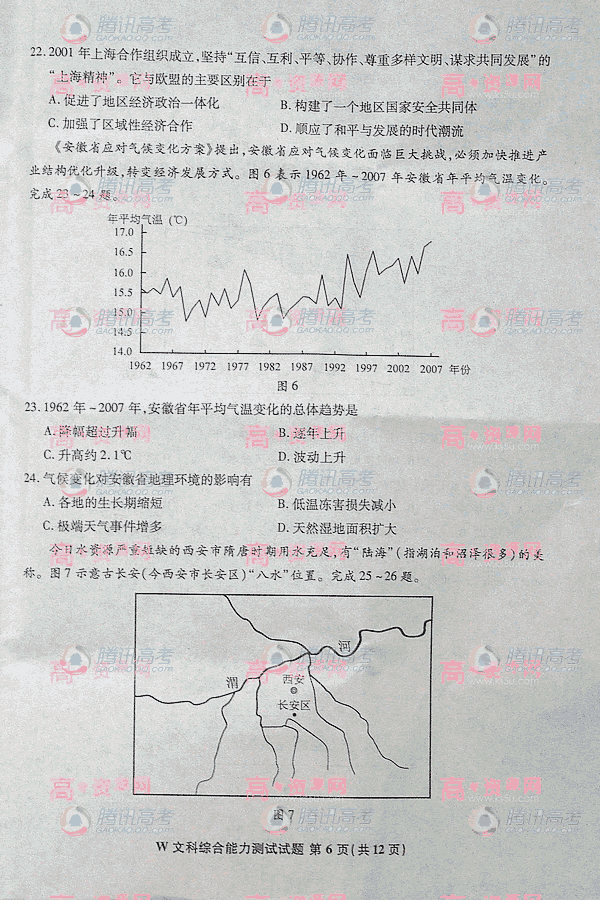 22. 2001 年上海合作组织成立,坚持“互信、互利、平等、协作、尊重多样文明、谋求共同发展”的
“上海精神”。它与欧盟的主要区别在于
A. 促进了地区经济政治一体化 B. 构建了一个地区国家安全共同体
C. 加强了区域性经济合作 D. 顺应了和平与发展的时代潮流
《安徽省应对气候变化方案》提出,安徽省应对气候变化面临巨大挑战,必须加快推进产
业结构优化升级,转变经济发展方式。图 6 表示 1962 年~2007 年安徽省年平均气温变化。
完成 23~24 题。
年平均气温 (℃)
17.0
16.5
16.0
15.5
15.0
14.5
14.0
1962 1967 1972 1977 1982 1987 1992 1997 2002 2007 年份
图 6
23. 1962 年~2007 年,安徽省年平均气温变化的总体趋势是
A. 降幅超过升幅 B. 逐年上升
C. 升高约 2.1℃ D. 波动上升
24. 气候变化对安徽省地理环境的影响有
A. 各地的生长期缩短 B. 低温冻害损失减小
C. 极端天气事件增多 D. 天然湿地面积扩大
今日水资源严重短缺的西安市隋唐时期用水充足,有“陆海”(指湖泊和沼泽很多)的美
称。图 7 示意古长安(今西安市长安区)“八水”位置。完成 25~26 题。
河
渭
西安
长安区
图 7
W 文科综合能力测试试题 第 6 页(共 12 页)
腾讯高考
GAOKAO.QQ.COM
高考资源网
www.ks5u.com